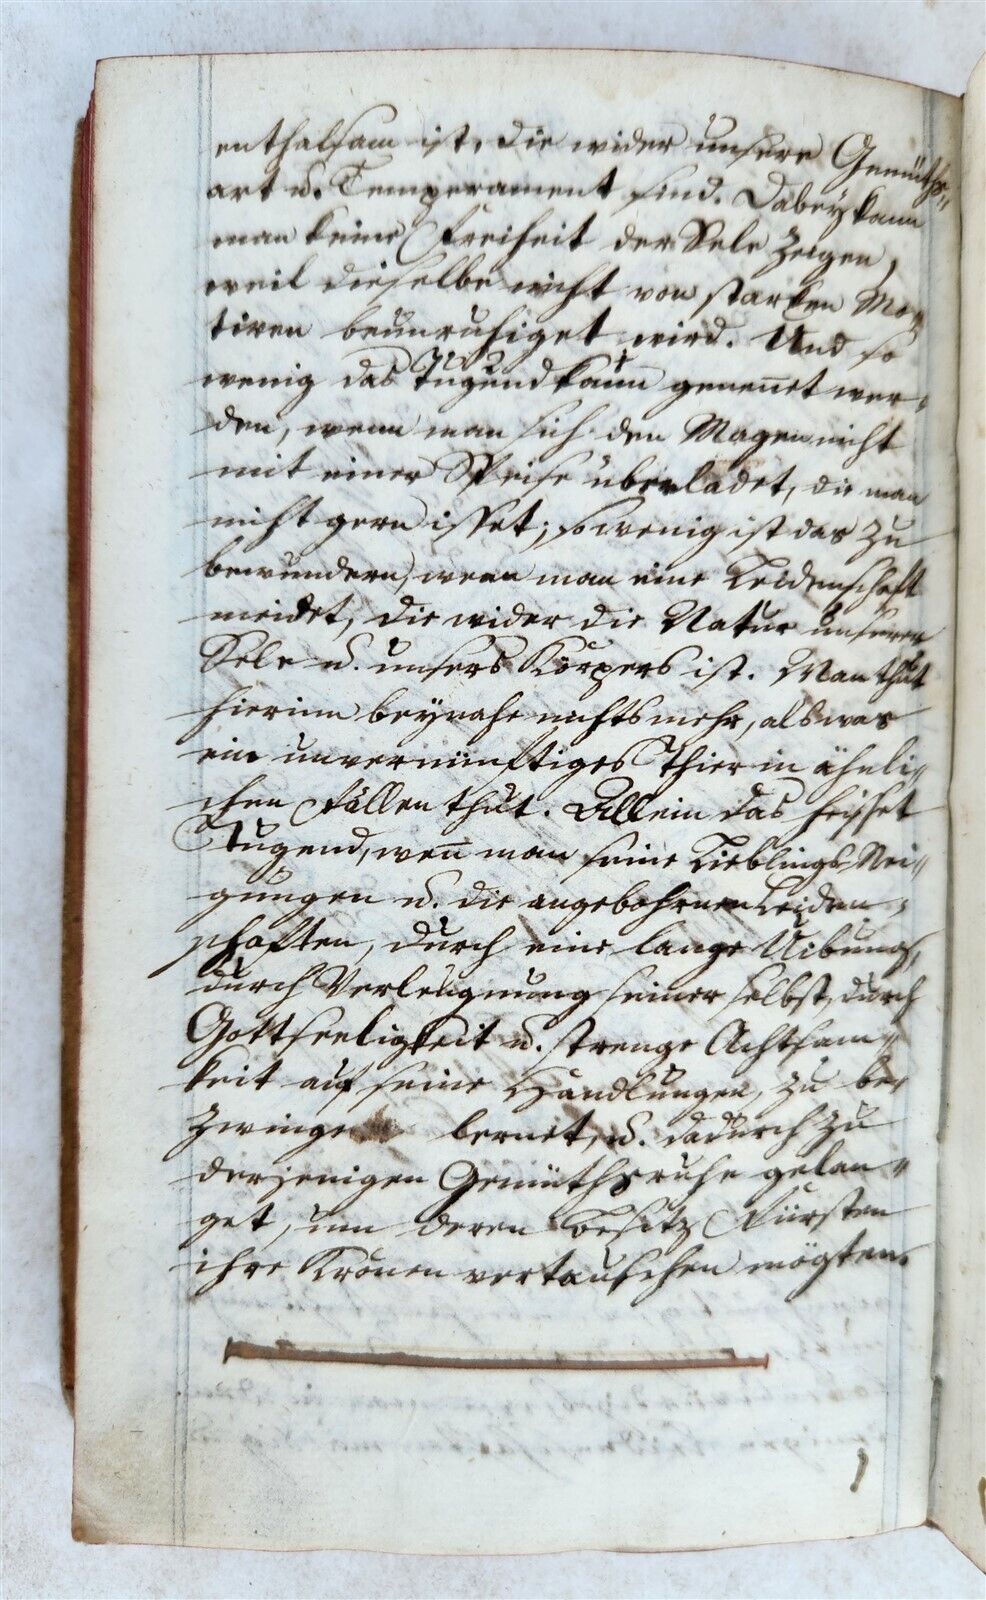 enthaltsam ist, die wider unsere Gemüths-
art u. Temperament sind. Dabey kann
man keine Freiheit der Sele zeigen,
weil dieselbe nicht von starken Mo-
tiven beunruhiget wird. Und so
wenig das Tugend kann genennet wer-
den, wenn man sich den Magen nicht
mit einer Speise überladet, die man
nicht gern isset; so wenig ist das zu
bewundern, wenn man eine Leidenschaft
meidet, die wider die Natur unserer
Sele u. unsers Körpers ist. Man thut
hierinn beynahe nichts mehr, als was
ein unvernünftiges Thier in ähnli-
chen Fällen thut. Allein das heisset
Tugend, wen̄ man seine Lieblings Nei-
gungen u. die angebohrnen Leiden-
schaften, durch eine lange Uibung,
durch Verleugnung seiner selbst, durch
Gottseeligkeit u. strenge Achtsam-
keit auf seine Handlungen, zu be-
zwingen lernet, u. dadurch zu
derjenigen Gemüthsruhe gelan-
get, um deren Besitz Fürsten
ihre Kronen vertauschen mögten.